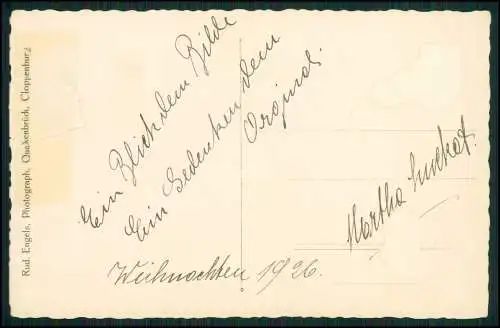 Ein Blick dem Bilde
Ein Gedenken dem
Original.
Martha
Weihnachten 1926.
Rud. Engels, Photograph, Quakenbrück, Cloppenburg